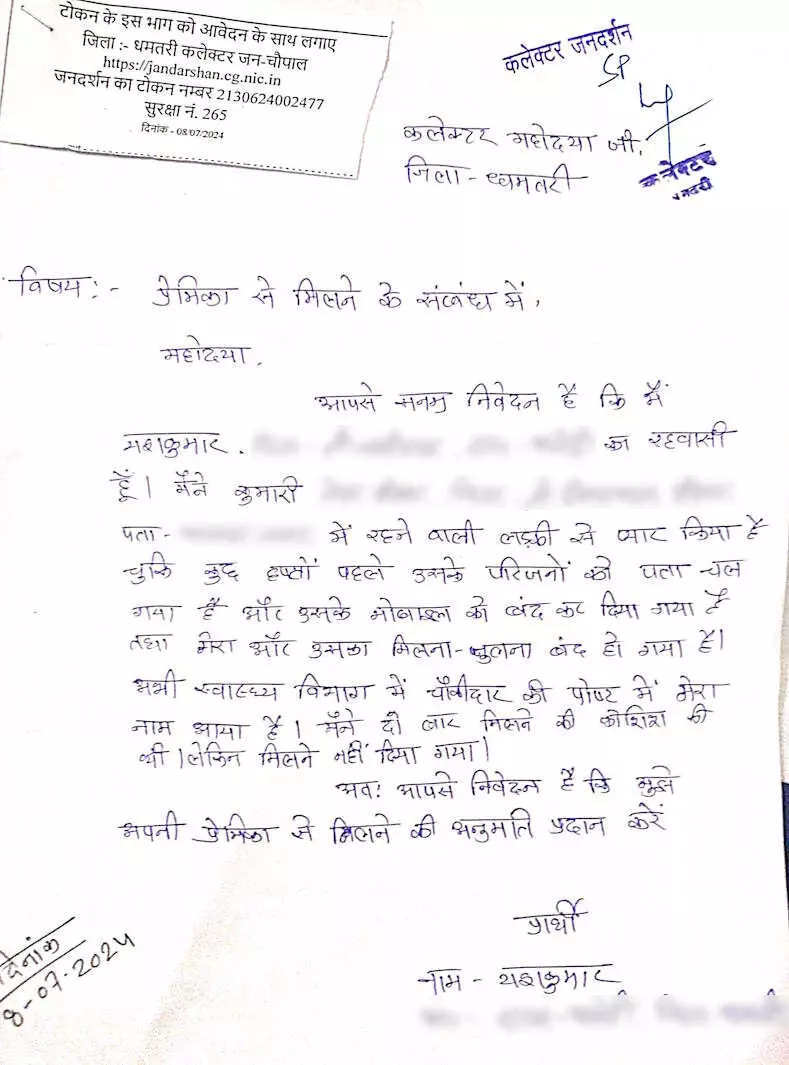 टोकन के इस भाग को आवेदन के साथ लगाए
जिला :- धमतरी कलेक्टर जन-चौपाल
https://jandarshan.cg.nic.in
जनदर्शन का टोकन नम्बर 2130624002477
सुरक्षा नं. 265
दिनांक - 08/07/2024
कलेक्टर जनदर्शन
SP
कलेक्टर महोदया जी,
जिला - धमतरी
कलेक्टर
विषय :- प्रेमिका से मिलने के संबंध में,
महोदया,
आपसे सनम्र निवेदन है कि मैं
यशकुमार. का रहवासी
हूँ। मैंने कुमारी
पता - में रहने वाली लड़की से प्यार किया है
चुकि कुछ हफ्तों पहले उसके परिजनों को पता चल
गया है और उसके मोबाइल को बंद कर दिया गया है
तथा मेरा और उसका मिलना-जुलना बंद हो गया है।
अभी स्वास्थ्य विभाग में चौकीदार की पोष्ट में मेरा
नाम आया है। मैंने दो बार मिलने की कोशिश की
थी। लेकिन मिलने नहीं दिया गया।
अतः आपसे निवेदन है कि मुझे
अपनी प्रेमिका से मिलने की अनुमति प्रदान करें
प्रार्थी
नाम - यशकुमार
दिनांक
8-07-2024